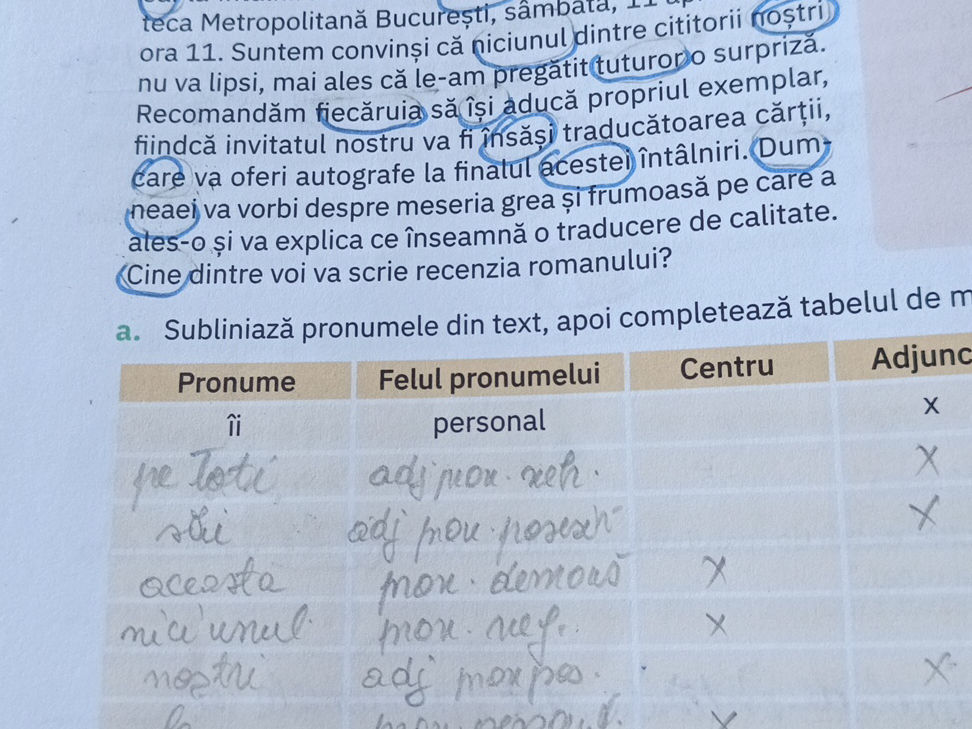 teca Metropolitană București, sâmbătă, 11
ora 11. Suntem convinși că niciunul dintre cititorii noștri
nu va lipsi, mai ales că le-am pregătit tuturor o surpriză.
Recomandăm fiecăruia să își aducă propriul exemplar,
fiindcă invitatul nostru va fi însăși traducătoarea cărții,
care va oferi autografe la finalul acestei întâlniri. Dum-
neaei va vorbi despre meseria grea și frumoasă pe care a
ales-o și va explica ce înseamnă o traducere de calitate.
Cine dintre voi va scrie recenzia romanului?
a. Subliniază pronumele din text, apoi completează tabelul de m
Pronume Felul pronumelui Centru Adjunc
îi personal x
pe toți adj pron. neh. x
săi adj pron. posesiv x
aceasta pron. demons x
niciunul pron. neg. x
noștri adj pron pos. x